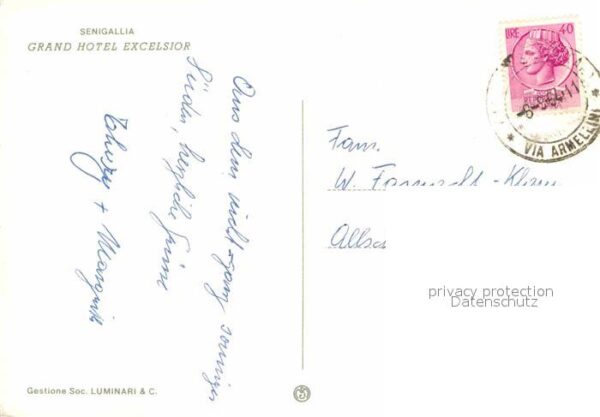 SENIGALLIA
GRAND HOTEL EXCELSIOR
Aus dem nicht ganz sonnigen
Süden, herzliche Grüsse
+ Margrith
LIRE 40
VIA ARMELLINI
Fam.
W.
privacy protection
Datenschutz
Gestione Soc. LUMINARI & C.